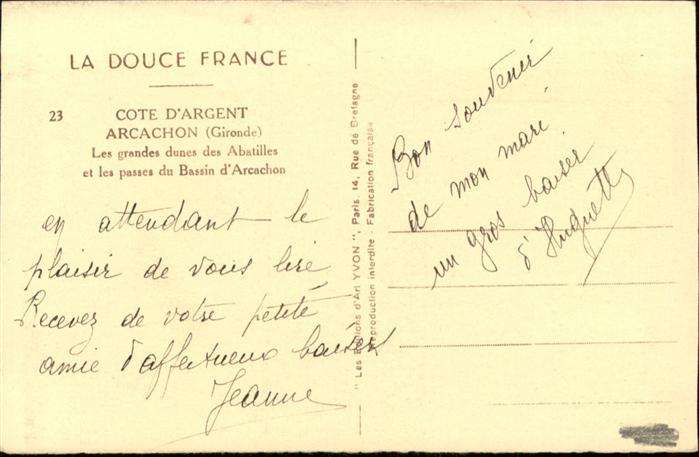 LA DOUCE FRANCE
23 COTE D'ARGENT
ARCACHON (Gironde)
Les grandes dunes des Abatilles
et les passes du Bassin d'Arcachon
en attendant le
plaisir de vous lire
Recevez de votre petite
amie d'affectueux baisers
Jeanne
"Les Editions d'Art YVON", Paris, 14, Rue de Bretagne
Reproduction interdite - Fabrication française
Bon souvenir
de mon mari
un gros baiser
d'Huguette